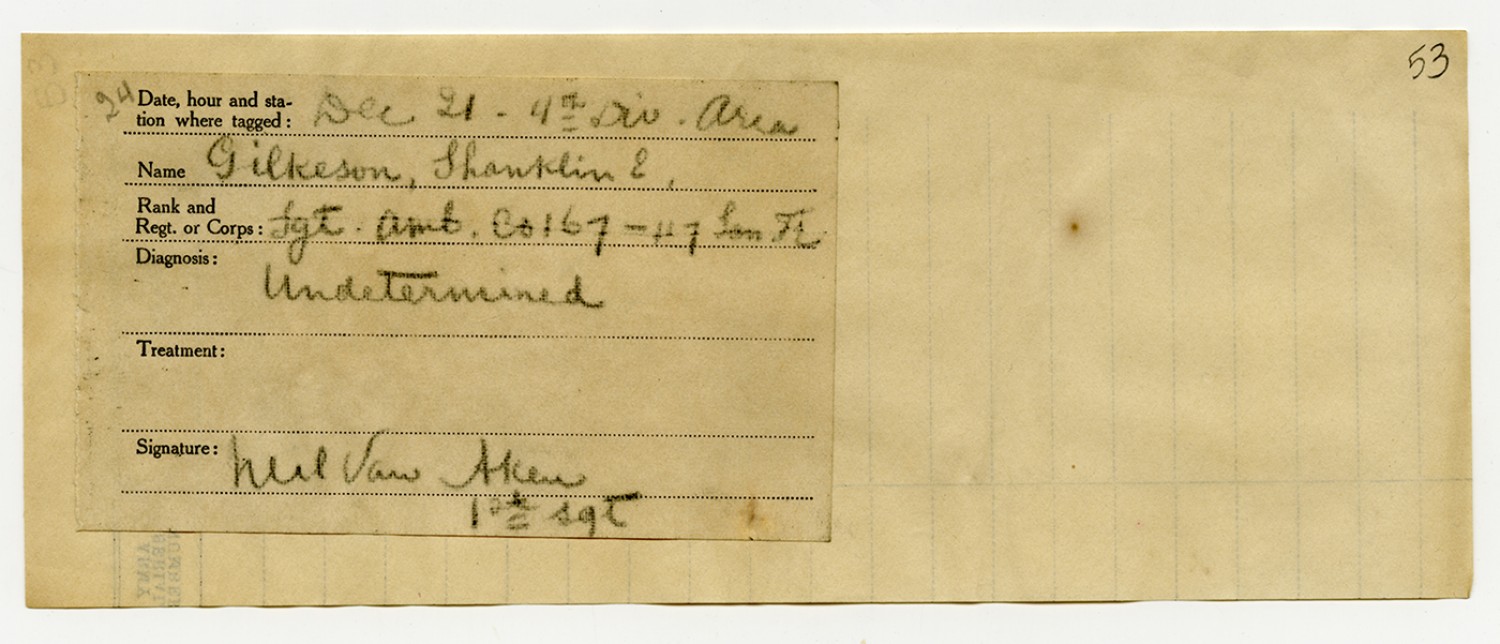 53
24
Date, hour and sta-
tion where tagged: Dec 21 - 4th Div. Area
Name Gilkeson, Shanklin E.
Rank and
Regt. or Corps: Sgt. Amb. Co 167 - 47 San Tr
Diagnosis:
Undetermined
Treatment:
Signature: Neil Van Aken
1st sgt